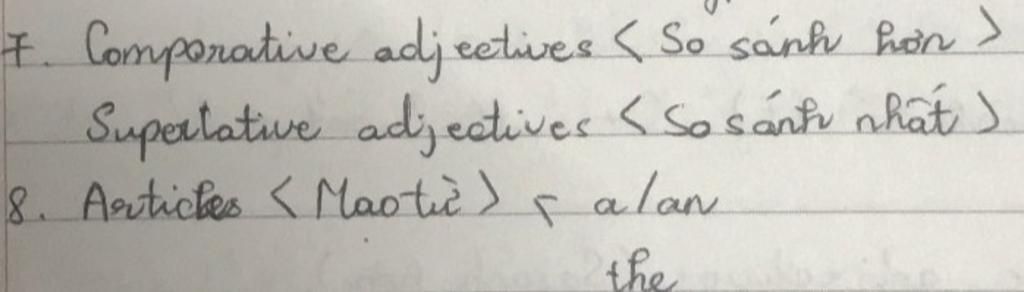 7. Comparative adjectives < So sánh hơn >
Superlative adjectives < So sánh nhất >
8. Articles < Mạo từ > a/an
the